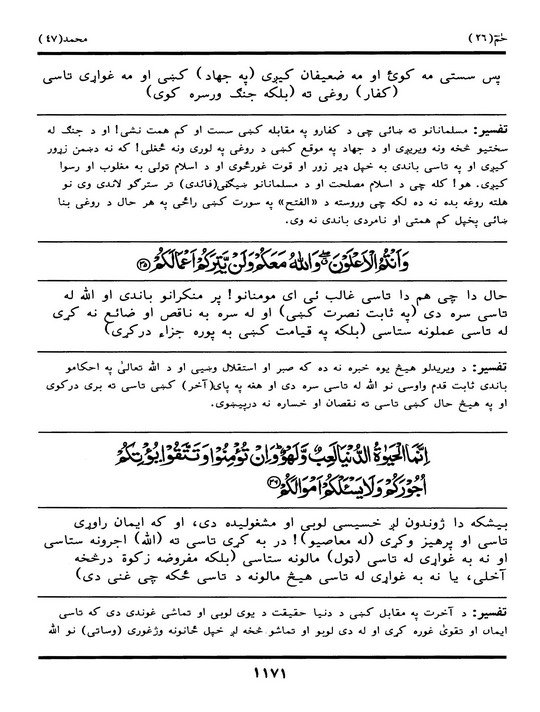 حٰمٓ (٢٦)
محمد (٤٧)
پس سستي مه کوئ او مه ضعيفان کيږي (په جهاد) کښي او مه غواړي تاسي
(کفار) روغي ته (بلکه جنګ ورسره کوي)
تفسير: مسلمانانو ته ښائي چي د کفارو په مقابله کښي سست او کم همت نشي! او د جنګ له
سختيو څخه ونه ويريږي او د جهاد په موقع کښي د روغي په لوري ونه ځغلي! که نه دښمن زړور
کيږي او په تاسي باندي به خپل ډير زور او قوت غورځوي او د اسلام ټولي به مغلوب او رسوا
کيږي. هو! کله چي د اسلام مصلحت او د مسلمانانو ښيګڼي(فائدي) تر سترګو لاندي وي نو
هلته روغه بده نه ده لکه چي وروسته د «الفتح» په سورت کښي راځي په هر حال د روغي بنا
ښائي پخپل کم همتي او نامردي باندي نه وي.
وَاَنْتُمُ الْاَعْلَوْنَ ۖ وَاللّٰهُ مَعَكُمْ وَلَنْ يَّتِرَكُمْ اَعْمَالَكُمْ ﴿٣٥﴾
حال دا چي هم دا تاسي غالب ئي اى مومنانو! پر منکرانو باندي او الله له
تاسي سره دي (په ثابت نصرت کښي) او له سره به ناقص او ضائع نه کړي
له تاسي عملونه ستاسي (بلکه په قيامت کښي به پوره جزاء درکړي)
تفسير: د ويريدلو هيڅ يوه خبره نه ده که صبر او استقلال وښيي او د الله تعالىٰ په احکامو
باندي ثابت قدم واوسي نو الله له تاسي سره دي او هغه په پاى(آخر) کښي تاسي ته بري درکوي
او په هيڅ حال کښي تاسي ته نقصان او خساره نه درپيښوي.
اِنَّمَا الْحَيٰوةُ الدُّنْيَا لَعِبٌ وَّلَهْوٌ ۚ وَاِنْ تُؤْمِنُوْا وَتَتَّقُوْا يُؤْتِكُمْ
اُجُوْرَكُمْ وَلَا يَسْـَٔلْكُمْ اَمْوَالَكُمْ ﴿٣٦﴾
بيشکه دا ژوندون لږ خسيسي لوبي او مشغوليده دى، او که ايمان راوړي
تاسي او پرهيز وکړي (له معاصيو)! در به کړي تاسي ته (الله) اجرونه ستاسي
او نه به غواړي له تاسي (ټول) مالونه ستاسي (بلکه مفروضه زکوة درڅخه
آخلي، يا نه به غواړي له تاسي هيڅ مالونه د تاسي ځکه چي غني دى)
تفسير: د آخرت په مقابل کښي د دنيا حقيقت د يوي لوبي او تماشي غوندي دى که تاسي
ايمان او تقوىٰ غوره کړى او له دي لوبو او تماشو څخه لږ خپل ځانونه وژغوري (وساتي) نو الله
١١٧١